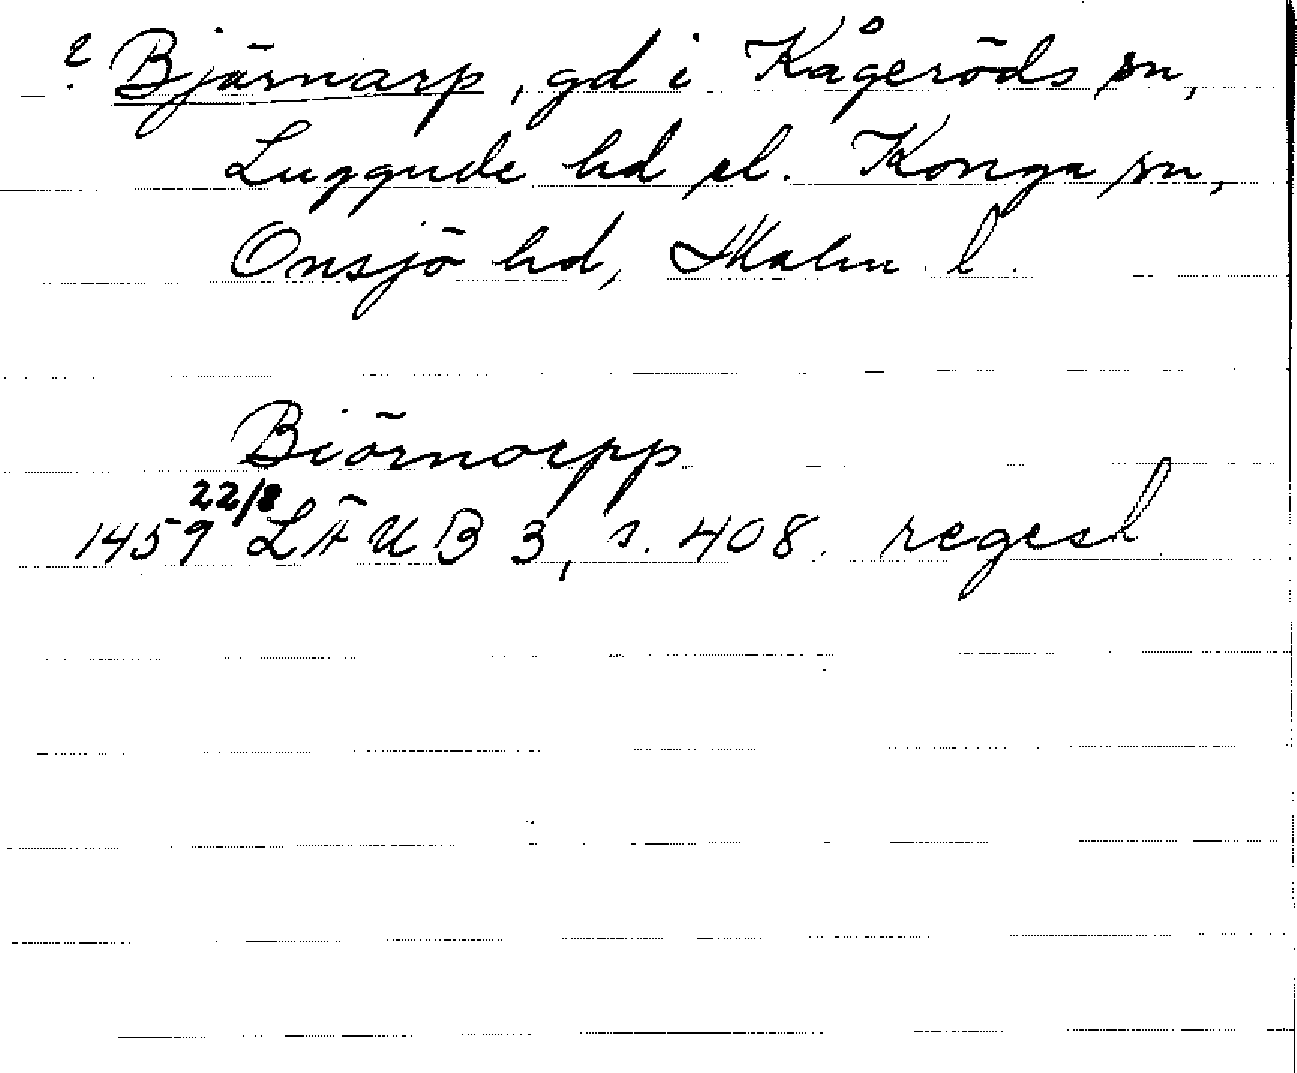 ? Bjärnarp, gd i Kågeröds sn,
Luggude hd el. Konga sn,
Onsjö hd, Malm l.
Biörnorpp
1459 22/8 LÄUB 3, s. 408. regest